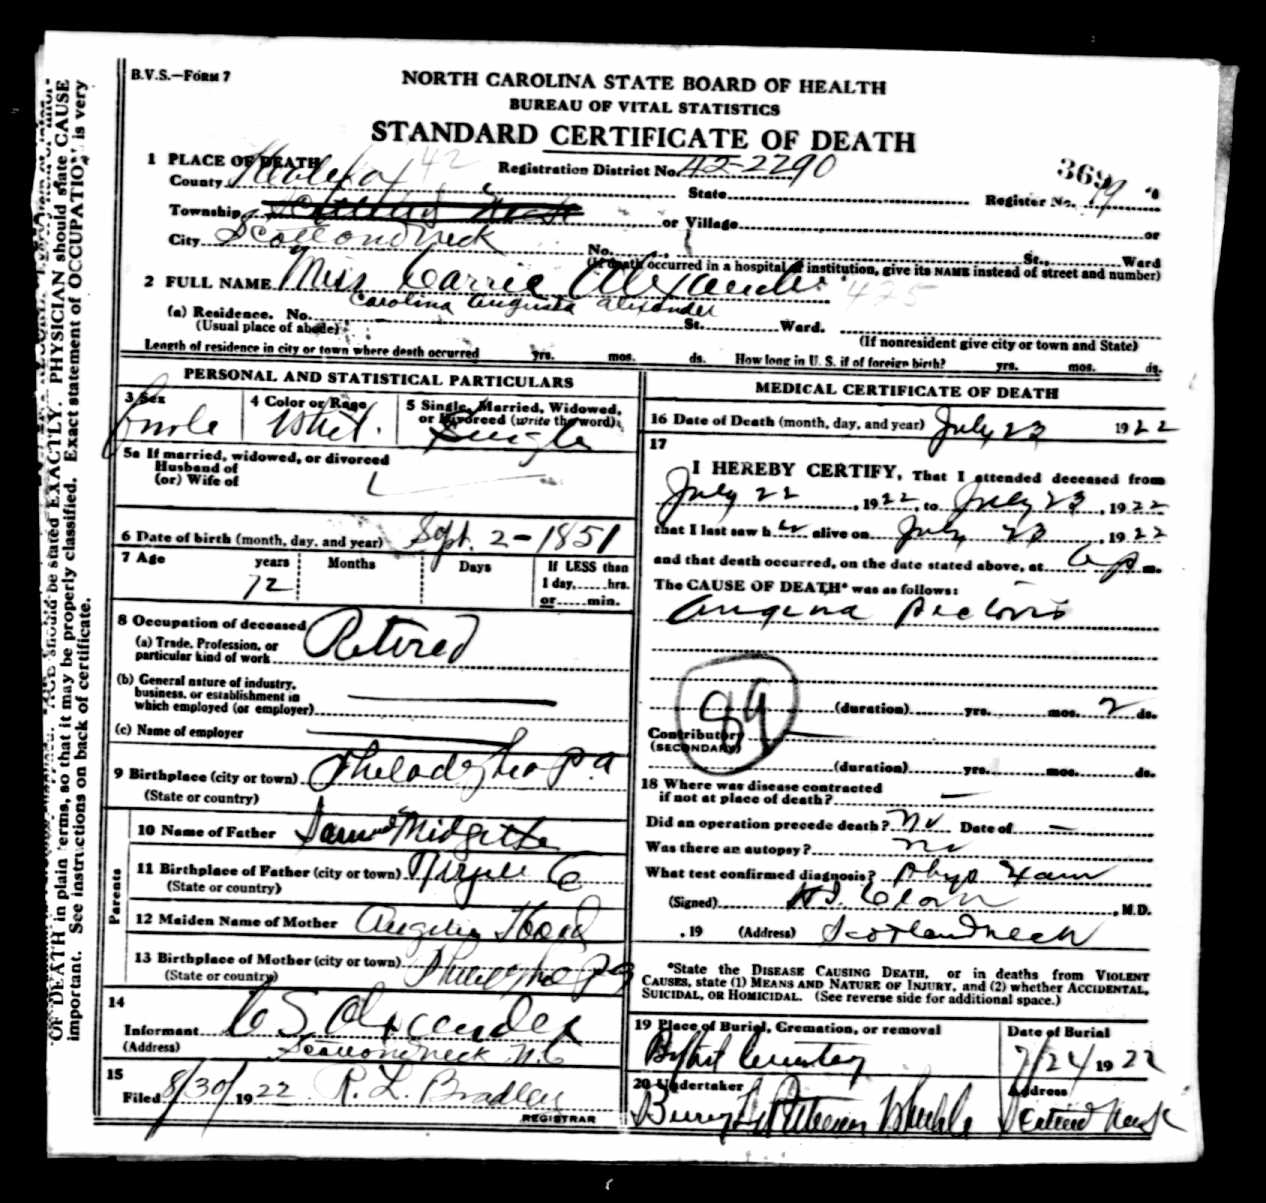 B.V.S.—FORM 7
NORTH CAROLINA STATE BOARD OF HEALTH
BUREAU OF VITAL STATISTICS
STANDARD CERTIFICATE OF DEATH
1 PLACE OF DEATH 42 Registration District No. 42-2290
County Halifax State Register No. 79
Township or Village or
City Scotland Neck No. St., Ward
(If death occurred in a hospital or institution, give its NAME instead of street and number)
2 FULL NAME Miss Carrie Alexander 425
Carolina Augusta Alexander
(a) Residence. No. St. Ward.
(Usual place of abode) (If nonresident give city or town and State)
Length of residence in city or town where death occurred yrs. mos. ds. How long in U. S. if of foreign birth? yrs. mos. ds.
PERSONAL AND STATISTICAL PARTICULARS
3 Sex 4 Color or Race 5 Single, Married, Widowed,
or Divorced (write the word)
Single
5a If married, widowed, or divorced
Husband of
(or) Wife of
6 Date of birth (month, day, and year) Sept. 2-1851
7 Age years Months Days If LESS than
72 1 day,......hrs.
or......min.
8 Occupation of deceased Retired
(a) Trade, Profession, or
particular kind of work
(b) General nature of industry,
business, or establishment in
which employed (or employer)
(c) Name of employer
9 Birthplace (city or town) Pa
(State or country)
Parents
10 Name of Father Samuel Midgette
11 Birthplace of Father (city or town)
(State or country)
12 Maiden Name of Mother
13 Birthplace of Mother (city or town)
(State or country)
14
Informant C S Alexander
(Address) Scotland Neck N.C
15
Filed 8/30/1922 R. L. Bradley
REGISTRAR
MEDICAL CERTIFICATE OF DEATH
16 Date of Death (month, day, and year) July 23 1922
17
I HEREBY CERTIFY, That I attended deceased from
July 22, 1922, to July 23, 1922
that I last saw her alive on July 23, 1922
and that death occurred, on the date stated above, at m.
The CAUSE OF DEATH* was as follows:
Angina Pectoris
89
(duration) yrs. mos. 2 ds.
Contributory
(SECONDARY)
(duration) yrs. mos. ds.
18 Where was disease contracted
if not at place of death?
Did an operation precede death? No Date of —
Was there an autopsy? No
What test confirmed diagnosis? Phys Exam
(Signed) , M.D.
, 19 (Address) Scotland Neck
*State the DISEASE CAUSING DEATH, or in deaths from VIOLENT
CAUSES, state (1) MEANS AND NATURE OF INJURY, and (2) whether ACCIDENTAL,
SUICIDAL, OR HOMICIDAL. (See reverse side for additional space.)
19 Place of Burial, Cremation, or removal Date of Burial
Baptist Cemetery 7/24 1922
20 Undertaker Address
Scotland Neck
OF DEATH in plain terms, so that it may be properly classified. Exact statement of OCCUPATION is very
important. See instructions on back of certificate.